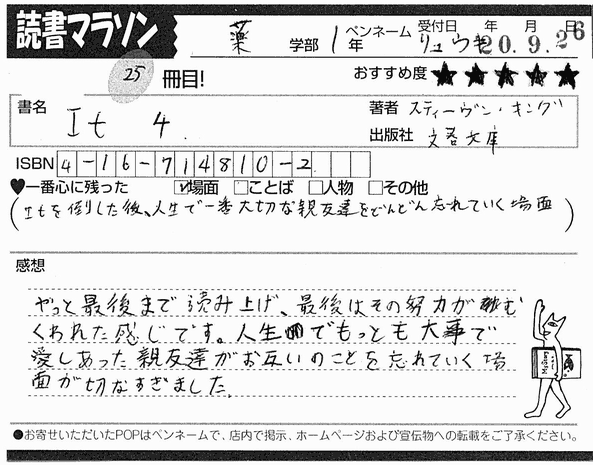 読書マラソン
薬 学部 1年 ペンネーム リュウキ 受付日 年 月 日
20.9.26
25 冊目! おすすめ度 ★★★★★
書名 It 4. 著者 スティーヴン・キング
出版社 文春文庫
ISBN 4-16-714810-2
♥一番心に残った ☑場面 □ことば □人物 □その他
(Itを倒した後、人生で一番大切な親友達をどんどん忘れていく場面)
感想
やっと最後まで読み上げ、最後はその努力がむ
くわれた感じです。人生でもっとも大事で
愛しあった親友達がお互いのことを忘れていく場
面が切なすぎました。
●お寄せいただいたPOPはペンネームで、店内で掲示、ホームページおよび宣伝物への転載をご了承ください。